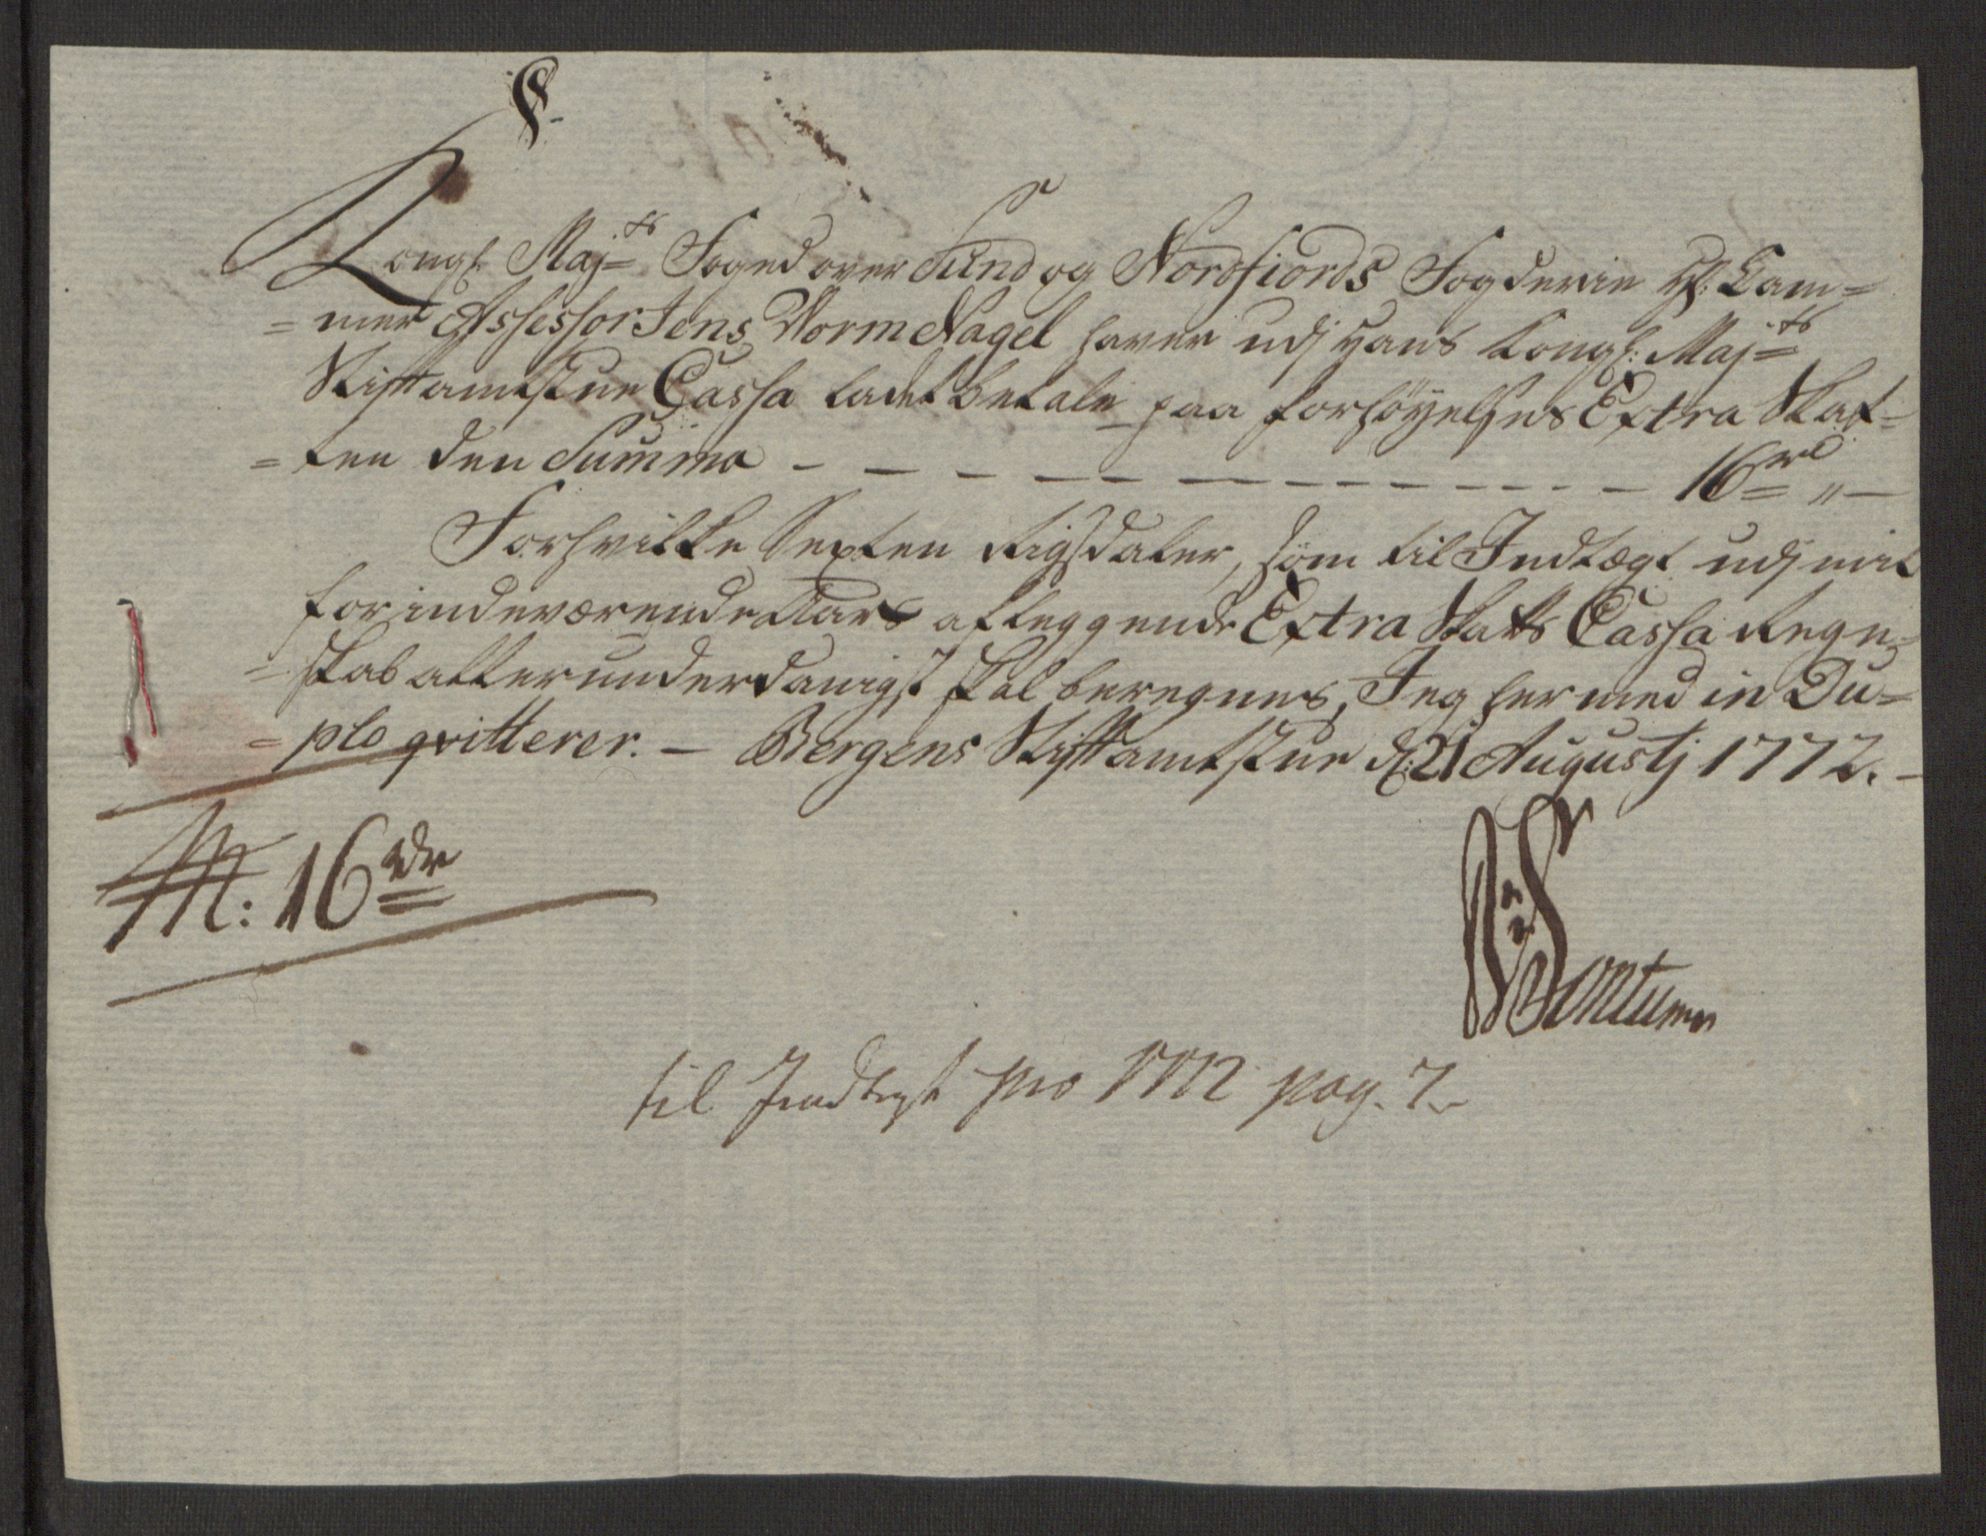 Kongl: Maj:ts Foged over Sund og Nordfiords Fogderie Hr: Cam=
=mer Assessor Jens Worm Nagel haver udj Hans Kongl: Maj:ts
Stiftamtstue Cassa ladet betale paa forhøyelses Extra Skat=
=ten den Summa - - - - - - - - - - - - - 16 rd "-
Forhvilke Sexten Rigsdaler, som til Indtægt udj mit
for indeværende Aars aflæggende Extra Skatts Cassa Regn=
=skab allerunderdanigst skal beregnes, Jeg hermed in Du=
=plo qvitterer. - Bergens Stiftamtstue d: 21 Augustj 1772. -
16 rdr
Sontumm
til Indtegt pro 1772 pag. 7.